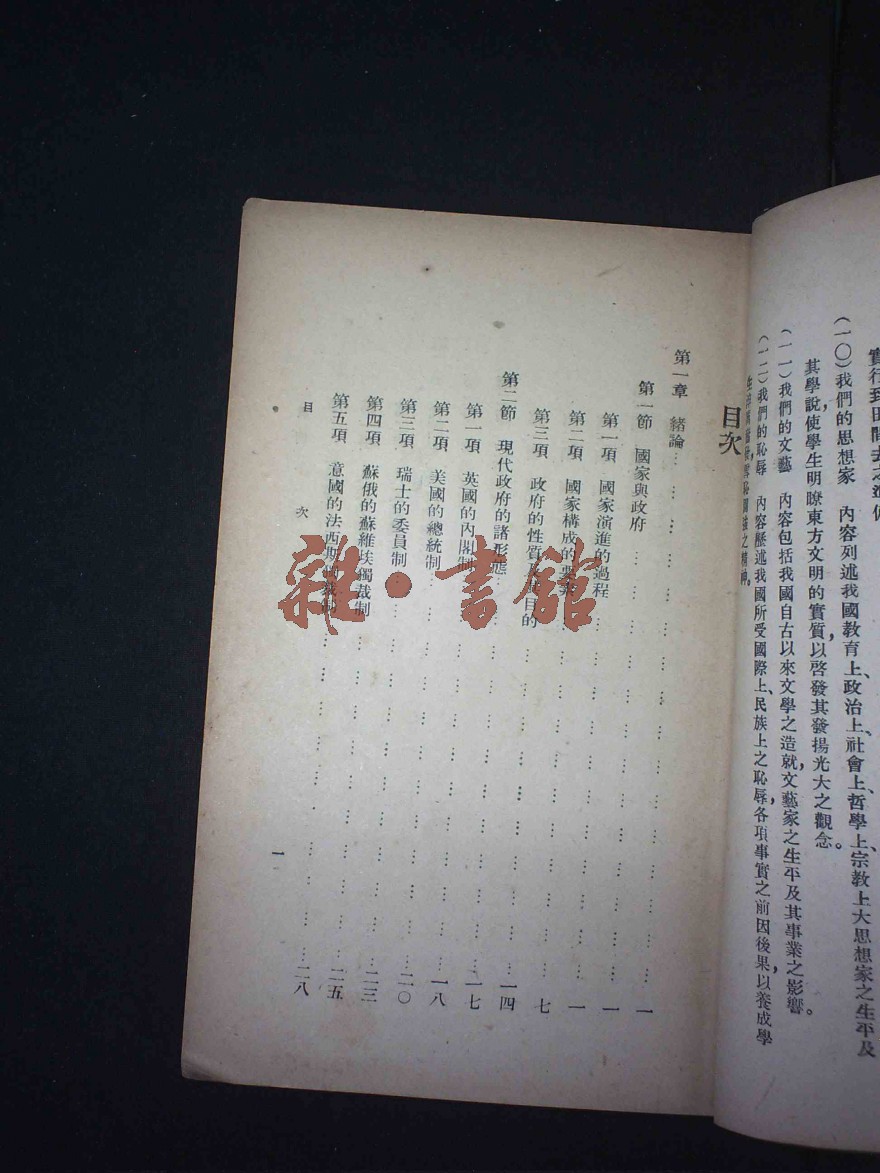 實行到田間去之準備
(一〇)我們的思想家 內容列述我國教育上、政治上、社會上、哲學上、宗教上大思想家之生平及
其學說,使學生明瞭東方文明的實質,以啓發其發揚光大之觀念。
(一一)我們的文藝 內容包括我國自古以來文學之造就,文藝家之生平及其事業之影響。
(一二)我們的恥辱 內容歷述我國所受國際上、民族上之恥辱,各項事實之前因後果,以養成學
目次
第一章 緒論……………………一
第一節 國家與政府……………………一
第一項 國家演進的過程……………………一
第二項 國家構成的要素……………………七
第三項 政府的性質及其目的……………………一四
第二節 現代政府的諸形態……………………一七
第一項 英國的內閣制……………………一八
第二項 美國的總統制……………………二〇
第三項 瑞士的委員制……………………二三
第四項 蘇俄的蘇維埃獨裁制……………………二五
第五項 意國的法西斯獨裁制……………………二八
目 次
一
雜·書館